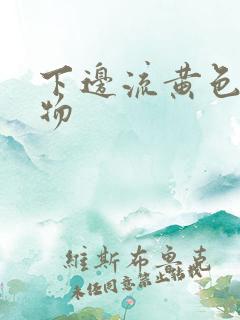 下邊流黄色
物
維斯布魯克
未经同意禁止转载